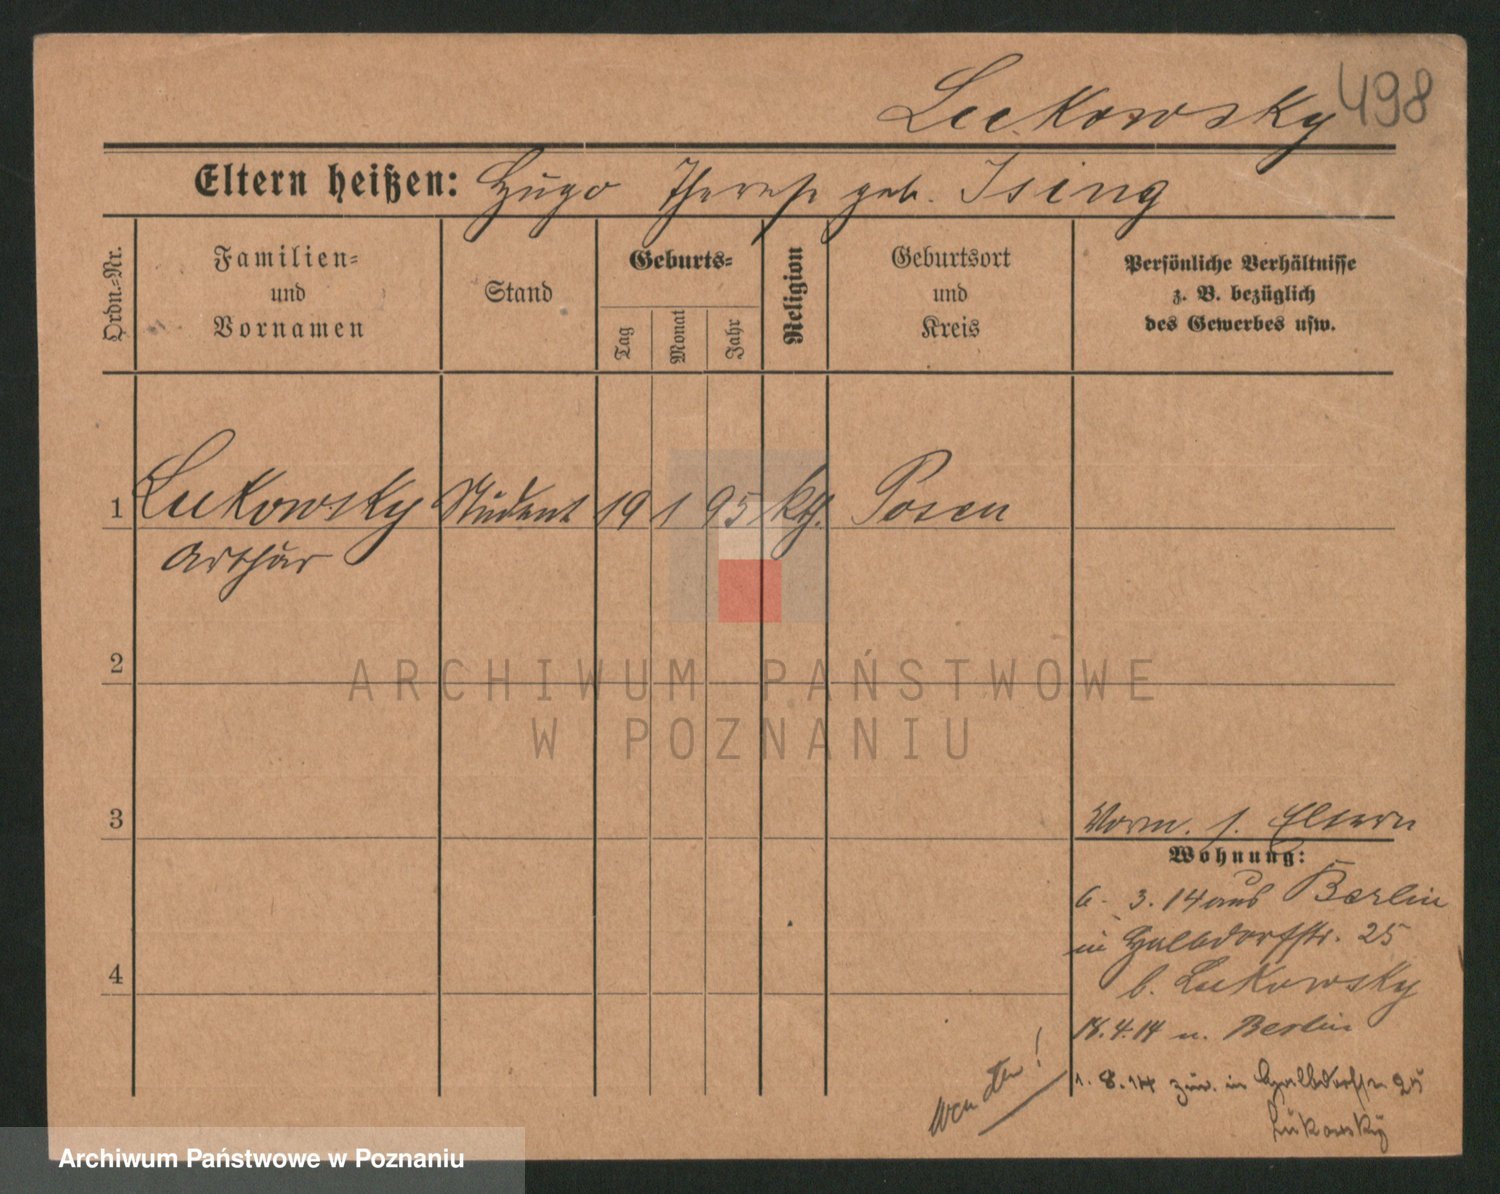 Luckowsky 498
Eltern heißen: Hugo Therese geb. Ising
Ordn.-Nr.
Familien-
und
Vornamen
Stand
Geburts-
Tag
Monat
Jahr
Religion
Geburtsort
und
Kreis
Persönliche Verhältnisse
z. B. bezüglich
des Gewerbes usw.
1 Luckowsky Student 19 1 95 kth. Posen
Arthur
2
ARCHIWUM PAŃSTWOWE
W POZNANIU
3
Vorm. s. Eltern
Wohnung:
6. 3. 14 aus Berlin
in Halbdorfstr. 25
4
b. Luckowsky
18.4.14 n. Berlin
wenden!
1. 8. 14 zur. in Halbdorfstr 25
Lukowsky
Archiwum Państwowe w Poznaniu